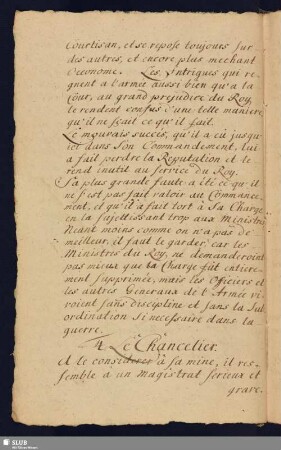 courtisan, et se repose toujours sur
des autres, et encore plus mechant
l'œconome. Les Intrigues qui re-
gnent a l'armée aussi bien qu'a la
Cour, au grand prejudice du Roy,
le rendent confus d'une telle maniere
qu'il ne sçait ce qu'il fait.
Le mauvais succes, qu'il a eû jusqu'
ici dans son Commandement, lui
a fait perdre la Reputation et le
rend inutil au service du Roy.
Sa plus grande faute a été ce qu'il
ne s'est pas fait valoir au Commance-
ment, et qu'il a fait tort à sa Charge
en la sujettissant trop aux Ministres
Neant moins comme on n'a pas de
meilleur, il faut le garder, car les
Ministres du Roy, ne demanderoint
pas mieux que la Charge fût entiere-
ment supprimée, mais les Officiers et
les autres Generaux de l'Armée vi-
voient sans discipline et sans la Sub-
ordination si necessaire dans la
guerre.
4 Le Chancelier.
A le considerer à sa mine, il res-
semble a un Magistrat serieux et
grave.
SLUB